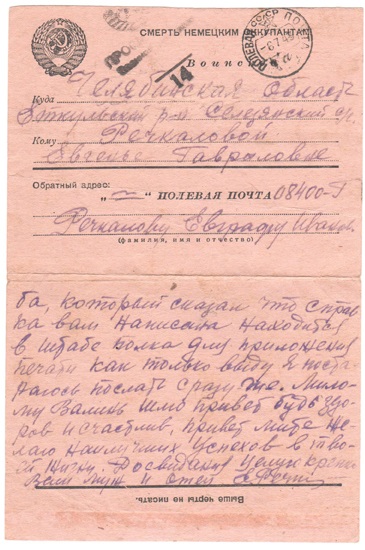 СМЕРТЬ НЕМЕЦКИМ ОККУПАНТАМ
Воинс
14
Куда Челябинская область
Еткульский р-н Селезянский с/с
Кому Речкаловой
Евгенье Гавриловне
Обратный адрес:
„ “ ПОЛЕВАЯ ПОЧТА 08400-Г
Речкалову Евграфу Иванов.
(фамилия, имя и отчество)
ба, который сказал что справ
ка вам написана находится
в штабе полка для приложения
печати как только выйду я поста
раюсь послать сразу же. Мило
му Валинь шлю привет будь здо
ров и счастлив, привет Мите же
лаю наилучших успехов в тво
ей жизни. Досвидания Целую крепко
Ваш муж и отец
Выше черты не писать.